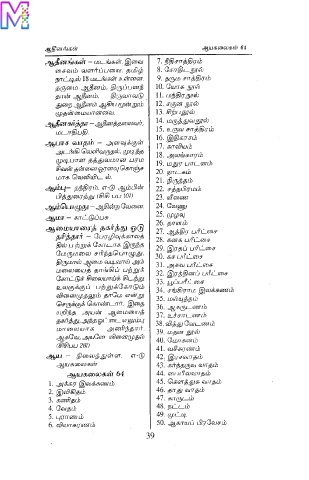 ஆதீனங்கள்
ஆயகலைகள் 64
ஆதீனங்கள் – மடங்கள். இவை
சைவம் வளர்ப்பவை. தமிழ்
நாட்டில் 18 மடங்கள் உள்ளன.
தருமை ஆதீனம், திருப்பனந்
தாள் ஆதீனம், திருவாவடு
துறை ஆதீனம் ஆகிய மூன்றும்
முதன்மையானவை.
ஆதீனகர்த்தர் – ஆதீனத்தலைவர்,
மடாதிபதி.
ஆபாச வாதம் – அனைக்குள்
அடங்கி வெளிவருதல். முடிந்த
முடிபான தத்துவமான பரம
சிவன் தன்னை
மாக வெளியிடல்.
ஆம்பு – தந்திரம். எ-டு ஆம்பின்
பித்துரைத்து (சிசிபப 101)
ஆம்பொழுது –
ஆமா – காட்டுப்பசு
ஆமையாரைத் தகர்த்து ஓடு
தரித்தார் – பேரழிவுக்காலத்
தில் பற்றுக் கோடாக இருந்த
மேருமலை சரிந்தபொழுது,
திருமால் ஆமை வடிவாய் அம்
மலையைத் தாங்கிப் பற்றுக்
கோட்டுச் நிலையாய்க் கிடந்து
உலகுக்குப் பற்றுக்கோடும்
வினைமுதலும் தாமே என்று
செருக்குக் கொண்டார். இதை
யறிந்த அயன் ஆமையைத்
தகர்த்து அந்த ஓட்டை எலும்பு
மாலையாக அணிந்தார்.
ஆகவே, அயனே வினைமுதல்
(சிசிபப 298)
ஆய – நிலைத்துள்ள. எ-டு
ஆயகலைகள்
ஆயகலைகள் 64
1. அக்கர இலக்கணம்
2. இலிகிதம்
3. கணிதம்
4. வேதம்
5. புராணம்
6. வியாகரணம்
7. நீதிசாத்திரம்
8. சோதிடநூல்
9. தரும சாத்திரம்
10. யோக நூல்
11. மந்திரநூல்
12. சகுன நூல்
13. சிற்பநூல்
14. மருத்துவநூல்
15. உருவ சாத்திரம்
16. இதிகாசம்
17. காவியம்
18. அலங்காரம்
19. மதுர பாடனம்
20. நாடகம்
21. நிருத்தம்
22. சத்தபிரமம்
23. வீணை
24. வேணு
25. முழவு
26. தாளம்
27. அத்திர பரீட்சை
28. கனக பரீட்சை
29. இரதப் பரீட்சை
30. கச பரீட்சை
31. அசுவ பரீட்சை
32. இரத்தினப் பரீட்சை
33. பூப்பரீட்சை
34. சங்கிராம இலக்கணம்
35. மல்யுத்தம்
36. ஆகருடணம்
37. உச்சாடணம்
38. வித்துவேடணம்
39. மதன நூல்
40. மோகனம்
41. வசீகரணம்
42. இரசவாதம்
43. காந்தருவ வாதம்
44. பைபீலவாதம்
45. கௌத்துக வாதம்
46. தாது வாதம்
47. காருடம்
48. நட்டம்
49. முட்டி
50. ஆகாயப் பிரவேசம்
39